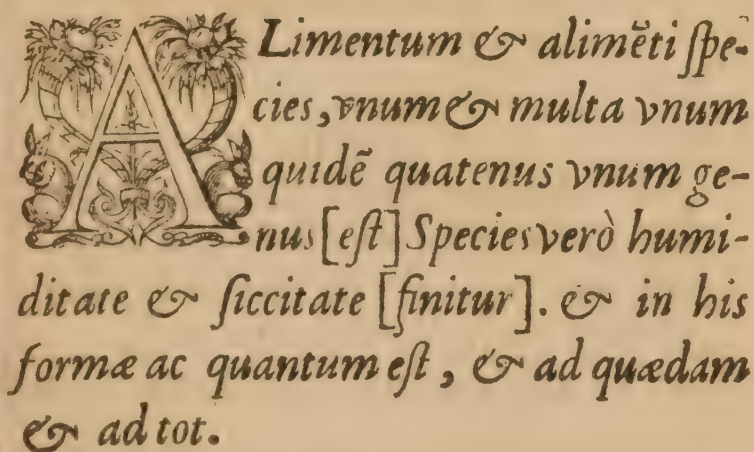 ALimentum & alimẽti ſpe-
cies, vnum & multa vnum
quidẽ quatenus vnum ge-
nus [eſt] Species verò humi-
ditate & ſiccitate [finitur]. & in his
formæ ac quantum eſt, & ad quædam
& ad tot.